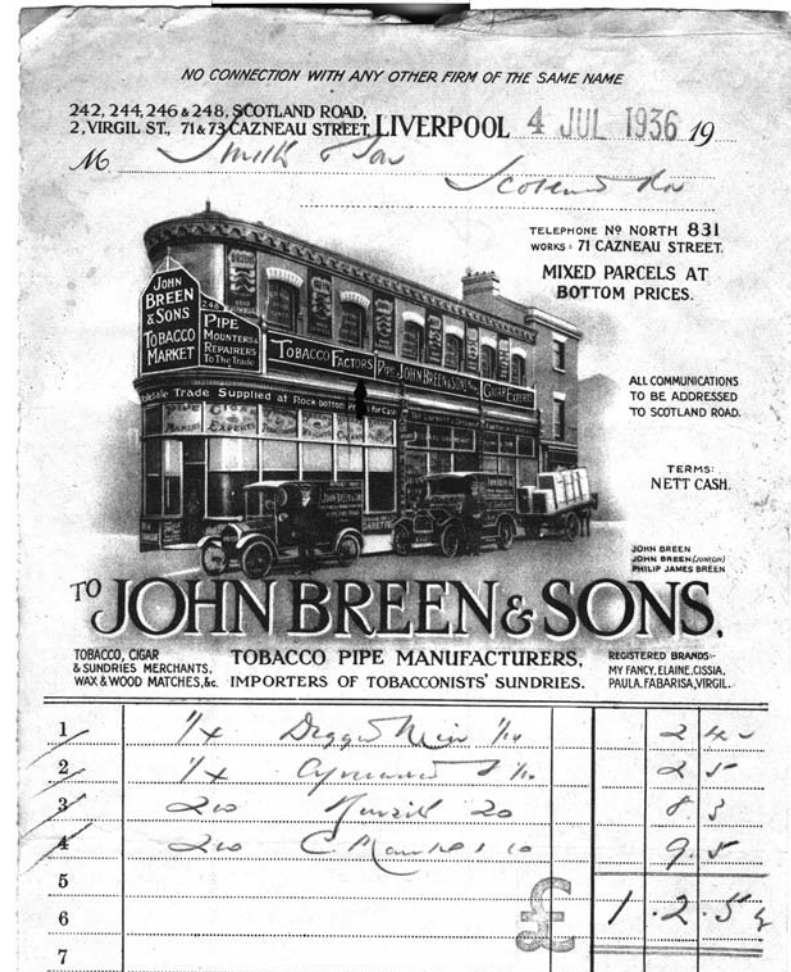 NO CONNECTION WITH ANY OTHER FIRM OF THE SAME NAME
242, 244, 246 & 248, SCOTLAND ROAD,
2, VIRGIL ST., 71 & 73 CAZNEAU STREET, LIVERPOOL 4 JUL 1936 19
M Smith & Son
Scotland Rd
TELEPHONE Nº NORTH 831
WORKS: 71 CAZNEAU STREET.
MIXED PARCELS AT
BOTTOM PRICES.
JOHN
BREEN
& SONS
TOBACCO
MARKET
248
PIPE
MOUNTERS &
REPAIRERS
To The Trade
TOBACCO FACTORS
PIPE JOHN BREEN & SONS
CIGAR EXPERTS
Trade Supplied at Rock-bottom Prices for Cash
ALL COMMUNICATIONS
TO BE ADDRESSED
TO SCOTLAND ROAD.
TERMS:
NETT CASH.
JOHN BREEN
JOHN BREEN (JUNIOR)
PHILIP JAMES BREEN
TO JOHN BREEN & SONS.
TOBACCO, CIGAR
& SUNDRIES MERCHANTS,
WAX & WOOD MATCHES, &c.
TOBACCO PIPE MANUFACTURERS,
IMPORTERS OF TOBACCONISTS' SUNDRIES.
REGISTERED BRANDS:-
MY FANCY, ELAINE, CISSIA,
PAULA, FABARISA, VIRGIL.
1 1/4 Digger 1/10 2 4
2 1/4 1/10 2 5
3 200 20 8. 3
4 200 C. 10 9. 5
5
6 £ 1. 2. 5
7